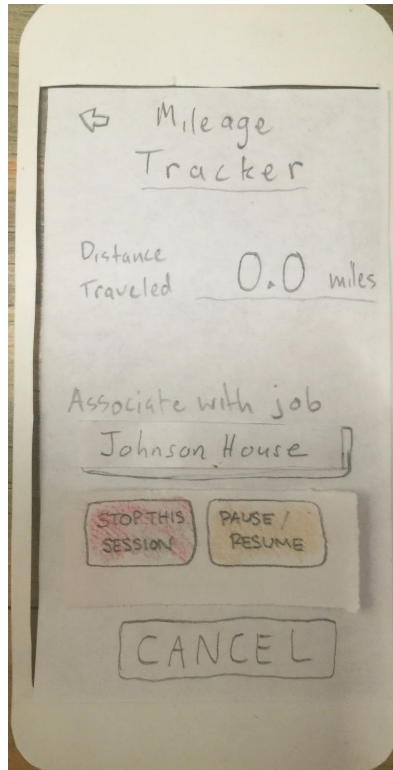 Mileage
Tracker
Distance
Traveled
0.0 miles
Associate with job
Johnson House
STOP THIS
SESSION
PAUSE /
RESUME
CANCEL